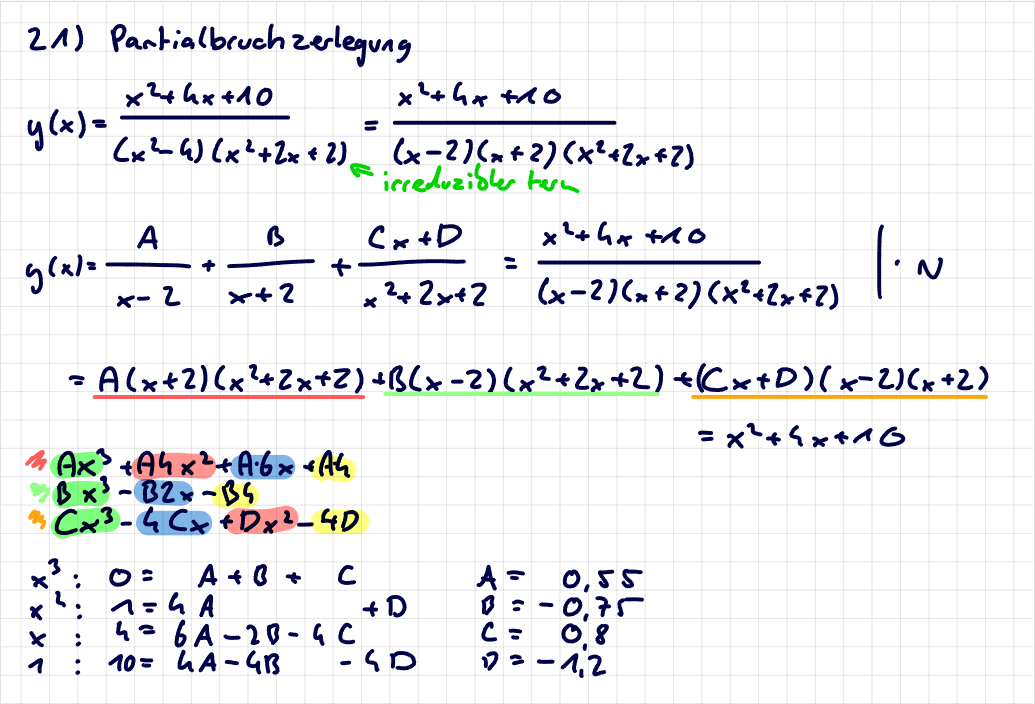 21) Partialbruchzerlegung
y(x) = (x²+4x+10)/((x²-4)(x²+2x+2)) = (x²+4x+10)/((x-2)(x+2)(x²+2x+2))
irreduzibler term
y(x) = A/(x-2) + B/(x+2) + (Cx+D)/(x²+2x+2) = (x²+4x+10)/((x-2)(x+2)(x²+2x+2)) | · N
= A(x+2)(x²+2x+2) + B(x-2)(x²+2x+2) + (Cx+D)(x-2)(x+2)
= x²+4x+10
Ax³ + A4x² + A·6x + A4
Bx³ - B2x - B4
Cx³ - 4Cx + Dx² - 4D
x³: 0 = A + B + C A = 0,55
x²: 1 = 4A + D B = -0,75
x: 4 = 6A - 2B - 4C C = 0,8
1: 10 = 4A - 4B - 4D D = -1,2